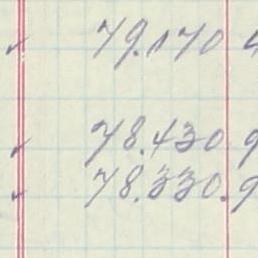 ✓ 79.170
✓ 78.430
✓ 78.330.